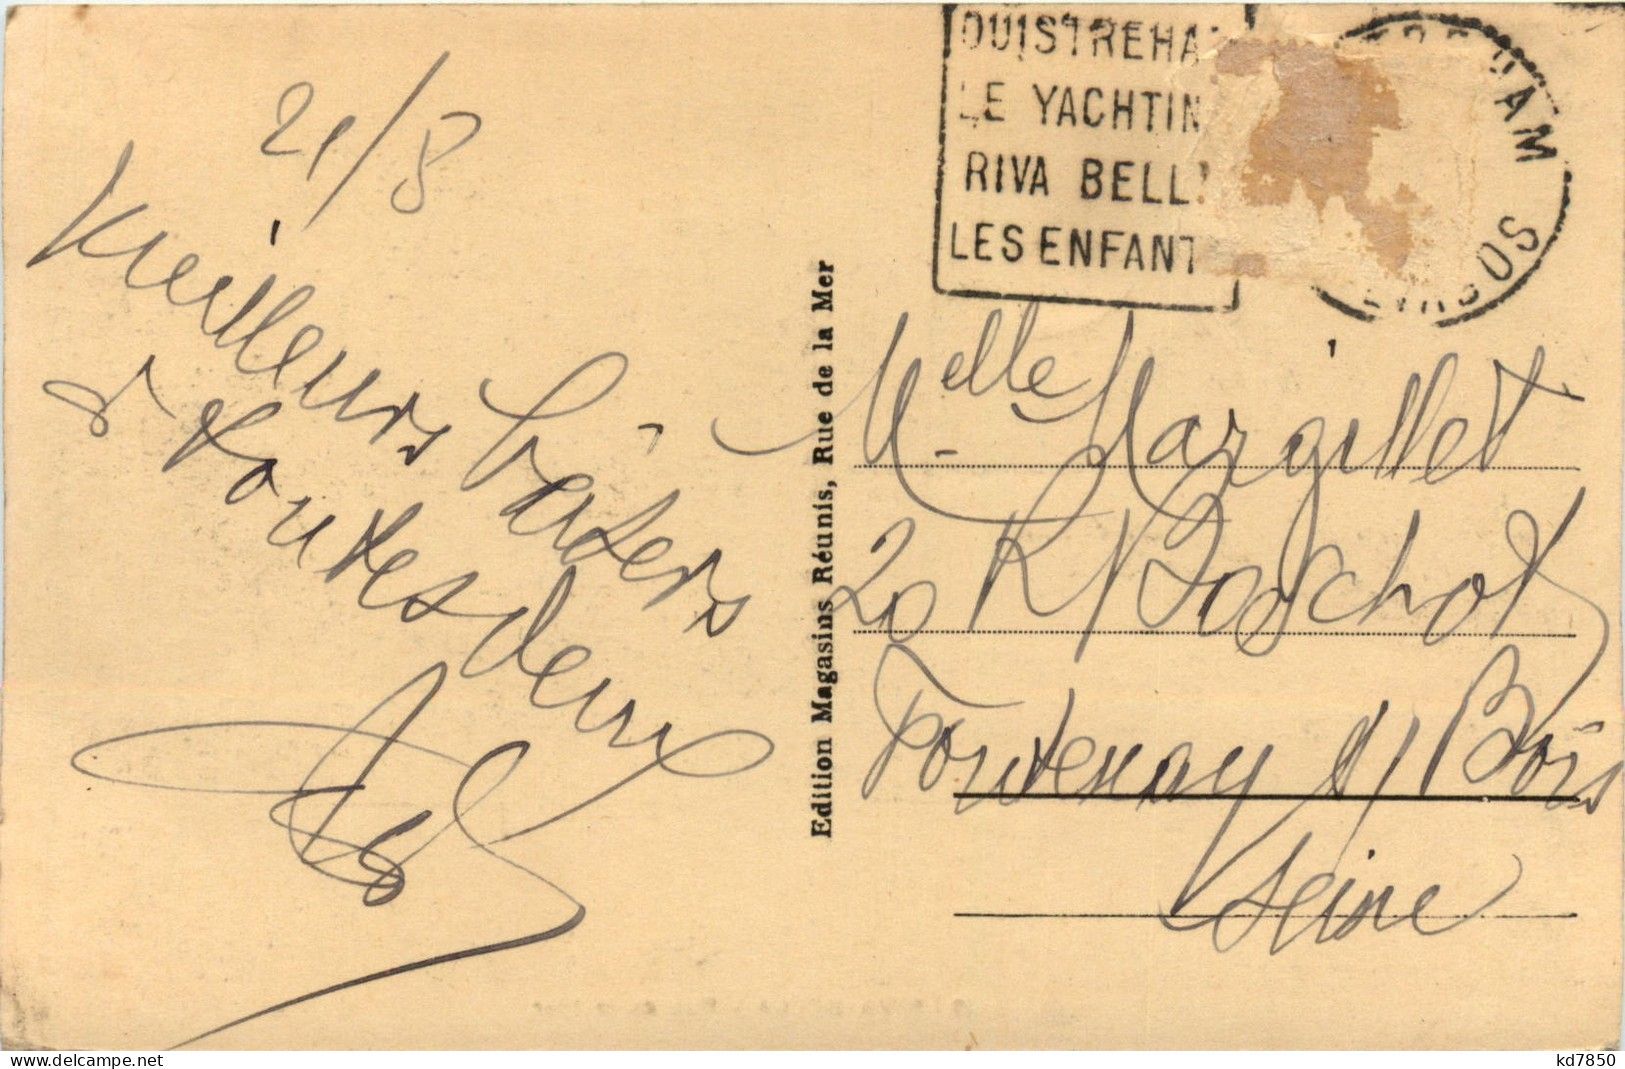 21/8
Meilleurs baisers
à toutes deux
OUISTREHA
LE YACHTIN
RIVA BELL
LES ENFANT
Edition Magasins Réunis, Rue de la Mer
Melle Margillet
20 R Boschot
Fontenay s/ Bois
Seine
www.delcampe.net
kd7850